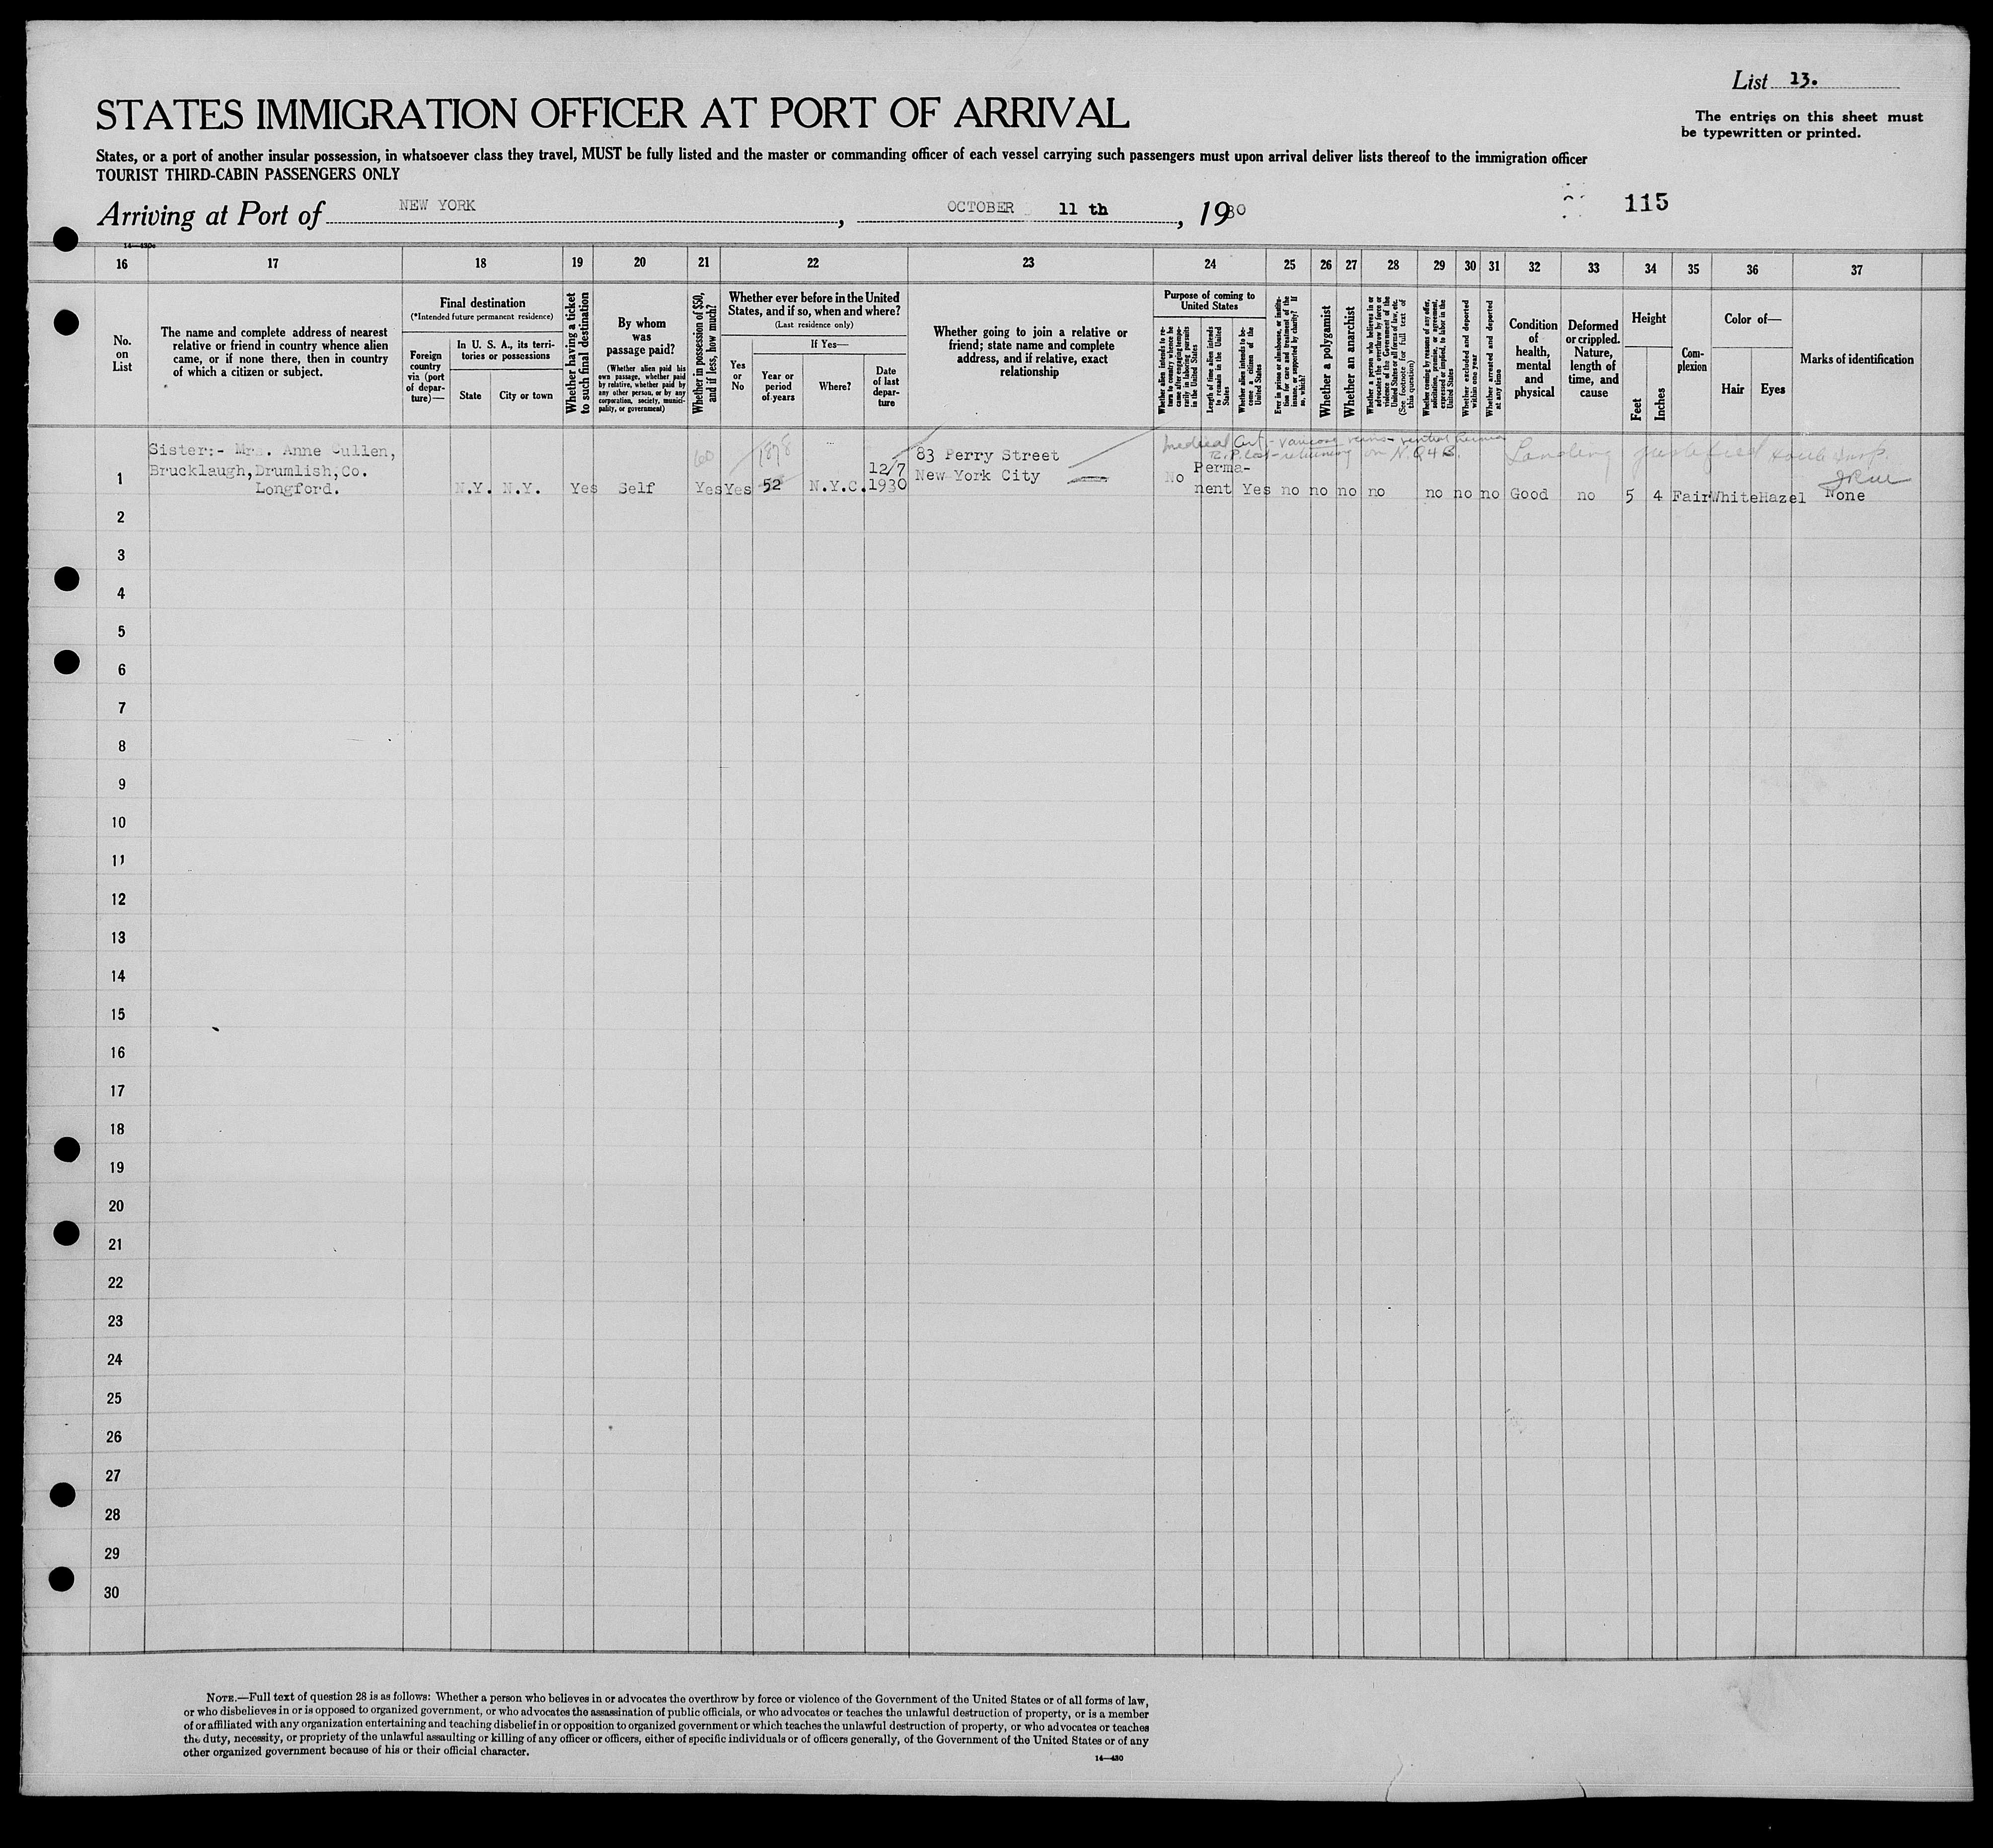 List 13.
STATES IMMIGRATION OFFICER AT PORT OF ARRIVAL
The entries on this sheet must
be typewritten or printed.
States, or a port of another insular possession, in whatsoever class they travel, MUST be fully listed and the master or commanding officer of each vessel carrying such passengers must upon arrival deliver lists thereof to the immigration officer
TOURIST THIRD-CABIN PASSENGERS ONLY
Arriving at Port of NEW YORK, OCTOBER 11 th, 1930
115
14—430c
16 17 18 19 20 21 22 23 24 25 26 27 28 29 30 31 32 33 34 35 36 37
No.
on
List
The name and complete address of nearest
relative or friend in country whence alien
came, or if none there, then in country
of which a citizen or subject.
Final destination
(*Intended future permanent residence)
Foreign
country
via (port
of depar-
ture)—
In U. S. A., its terri-
tories or possessions
State
City or town
Whether having a ticket
to such final destination
By whom
was
passage paid?
(Whether alien paid his
own passage, whether paid
by relative, whether paid by
any other person, or by any
corporation, society, munici-
pality, or government)
Whether in possession of $50,
and if less, how much?
Whether ever before in the United
States, and if so, when and where?
(Last residence only)
Yes
or
No
If Yes—
Year or
period
of years
Where?
Date
of last
depar-
ture
Whether going to join a relative or
friend; state name and complete
address, and if relative, exact
relationship
Purpose of coming to
United States
Whether alien intends to re-
turn to country whence he
came after engaging tempo-
rarily in laboring pursuits
in the United States
Length of time alien intends
to remain in the United
States
Whether alien intends to be-
come a citizen of the
United States
Ever in prison or almshouse, or institu-
tion for care and treatment of the
insane, or supported by charity? If
so, which?
Whether a polygamist
Whether an anarchist
Whether a person who believes in or
advocates the overthrow by force or
violence of the Government of the
United States or all forms of law, etc.
(See footnote for full text of
this question)
Whether coming by reasons of any offer,
solicitation, promise, or agreement,
expressed or implied, to labor in the
United States
Whether excluded and deported
within one year
Whether arrested and deported
at any time
Condition
of
health,
mental
and
physical
Deformed
or crippled.
Nature,
length of
time, and
cause
Height
Feet
Inches
Com-
plexion
Color of—
Hair
Eyes
Marks of identification
Medical Cert. - varicose veins - ventral hernia
R.P. lost - returning on N.Q 4 B. Landing justified
Sister:- Mrs. Anne Cullen,
Brucklaugh, Drumlish, Co.
Longford.
60 1878 12/7
83 Perry Street
New York City
1 N.Y. N.Y. Yes Self Yes Yes 52 N.Y.C. 1930 No Perma-
nent Yes no no no no no no no Good no 5 4 Fair White Hazel None
2
3
4
5
6
7
8
9
10
11
12
13
14
15
16
17
18
19
20
21
22
23
24
25
26
27
28
29
30
NOTE.—Full text of question 28 is as follows: Whether a person who believes in or advocates the overthrow by force or violence of the Government of the United States or of all forms of law,
or who disbelieves in or is opposed to organized government, or who advocates the assassination of public officials, or who advocates or teaches the unlawful destruction of property, or is a member
of or affiliated with any organization entertaining and teaching disbelief in or opposition to organized government or which teaches the unlawful destruction of property, or who advocates or teaches
the duty, necessity, or propriety of the unlawful assaulting or killing of any officer or officers, either of specific individuals or of officers generally, of the Government of the United States or of any
other organized government because of his or their official character.
14—430